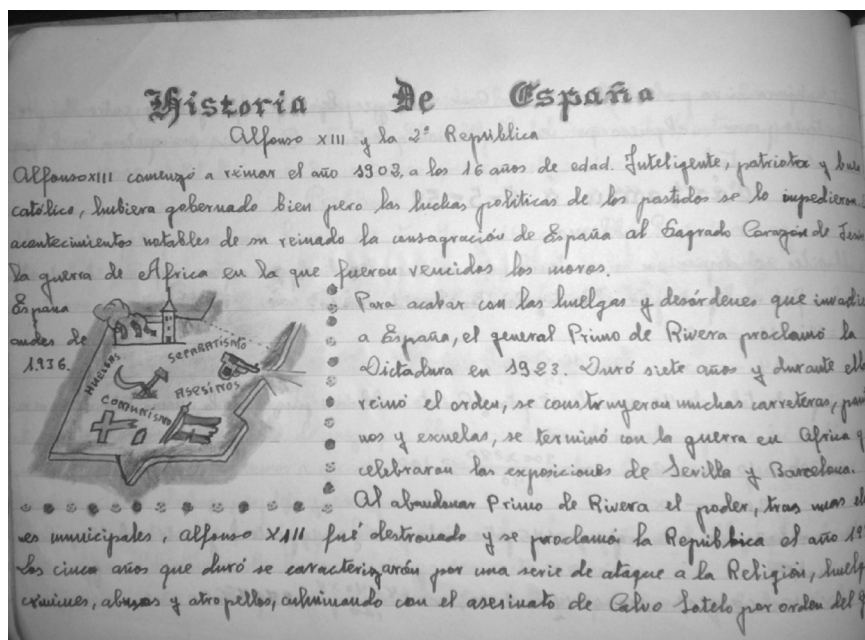 Historia De España
Alfonso XIII y la 2ª República
Alfonso XIII comenzó a reinar el año 1902, a los 16 años de edad. Inteligente, patriota y
católico, hubiera gobernado bien pero las luchas políticas de los partidos se lo impidieron.
acontecimientos notables de su reinado la consagración de España al Sagrado Corazón de
la guerra de Africa en la que fueron vencidos los moros.
España
andes de
1.936.
HUELGAS
SEPARATISMO
ASESINOS
COMUNISMO
Para acabar con las huelgas y desórdenes que
a España, el general Primo de Rivera proclamó la
Dictadura en 1923. Duró siete años y durante
reinó el orden, se construyeron muchas carreteras,
nos y escuelas, se terminó con la guerra en Africa
celebraron las exposiciones de Sevilla y Barcelona.
Al abandonar Primo de Rivera el poder, tras unas
es municipales, Alfonso XIII fué destronado y se proclamó la República el año 19
Los cinco años que duró se caracterizarón por una serie de ataque a la Religión,
crímines, abusos y atropellos, culminando con el asesinato de Calvo Sotelo por orden del